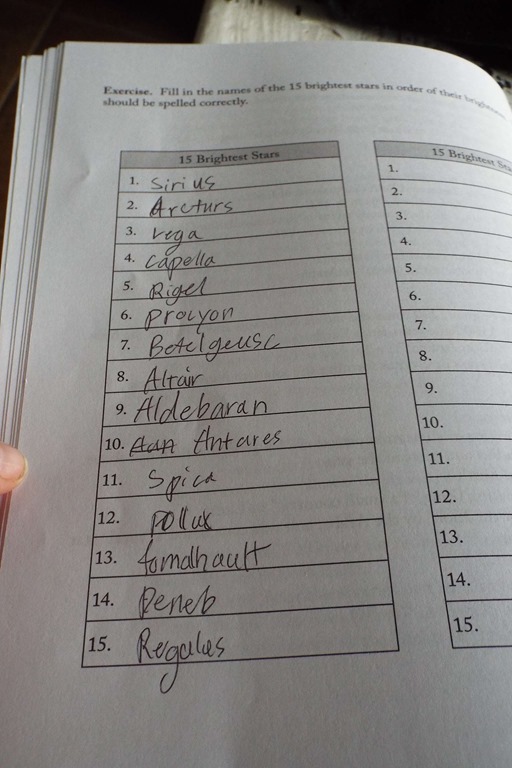 Exercise. Fill in the names of the 15 brightest stars in order of their
should be spelled correctly.
15 Brightest Stars
1. Sirius
2. Arcturs
3. vega
4. capella
5. Rigel
6. procyon
7. Betelgeuse
8. Altair
9. Aldebaran
10. Aan Antares
11. Spica
12. pollux
13. fomalhault
14. Deneb
15. Regulus
15 Brightest
1.
2.
3.
4.
5.
6.
7.
8.
9.
10.
11.
12.
13.
14.
15.